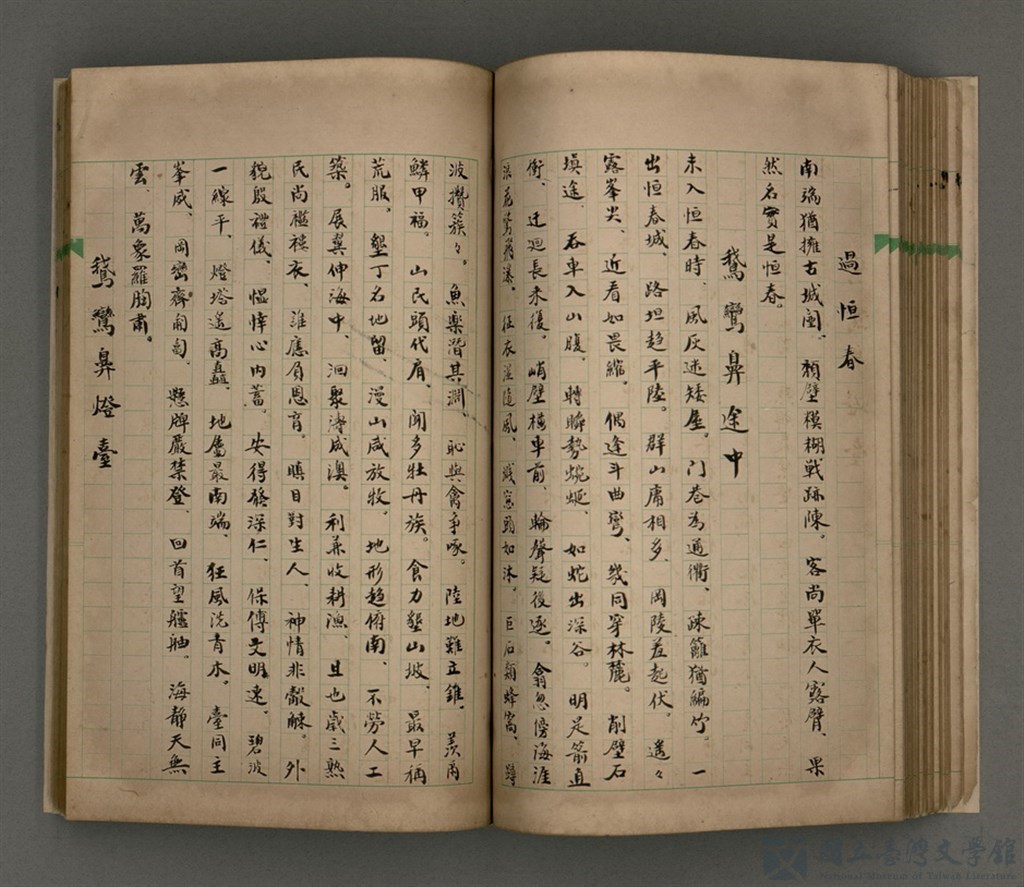 過恒春
南端猶擁古城闉、頹壁模糊戦跡陳。客尚單衣人露臂、果
然名實是恒春。
鵞鸞鼻途中
未入恒春時、風灰迷矮屋。门巷為通衢、疎籬猶編竹。一
出恒春城、路坦趋平陸。群山庸相多、岡陵羞起伏。遙々
露峯尖、近看如畏縮。偶逢斗曲彎、幾同穿林麓。削壁石
填途、吞車入山腹。轉瞬勢蜿蜒、如蛇出深谷。明是箭直
衝、迂迴長未復。峭壁横車前、輪聲疑後逐。翕忽傍海涯
征衣 隨風、減 如沐。巨石類蜂窩、
波攢簇々。魚楽潛其淵、恥與禽争啄。陸地難立錐、羨爾
鱗甲福。山民頭代肩、聞多牡丹族。食力墾山坡、最早稱
荒服。墾丁名地留、漫山咸放牧。地形趋俯南、不勞人工
築。展翼伸海中、洄聚濤成澳。利兼收耕漁、且也歳三熟
民尚襤褸衣、誰應負恩育。瞋目對生人、神情非觳觫。外
貌殷禮儀、愠悻心内蓄。安得發深仁、保傅文明速。碧波
一線平、燈塔遙高矗。地屬最南端、狂風洗青木。臺同主
峯威、岡巒齊匍匐。懸牌嚴禁登、回首望艫舳。海静天無
雲、萬象羅胸肅。
鵞鸞鼻燈臺
國立臺灣文學館
National Museum of Taiwan Literature